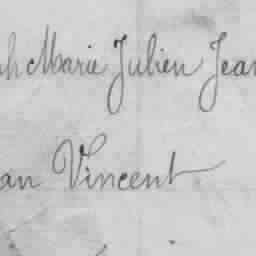 ph Marie Julien Jean
an Vincent